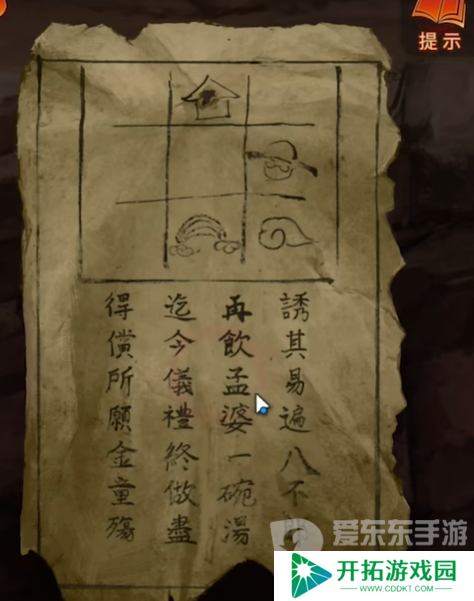 提示
誘其易遍八不
再飲孟婆一碗湯
迄今儀禮終做盡
得償所願金童殤
爱东东手游
开拓游戏园
www.CDDKT.com